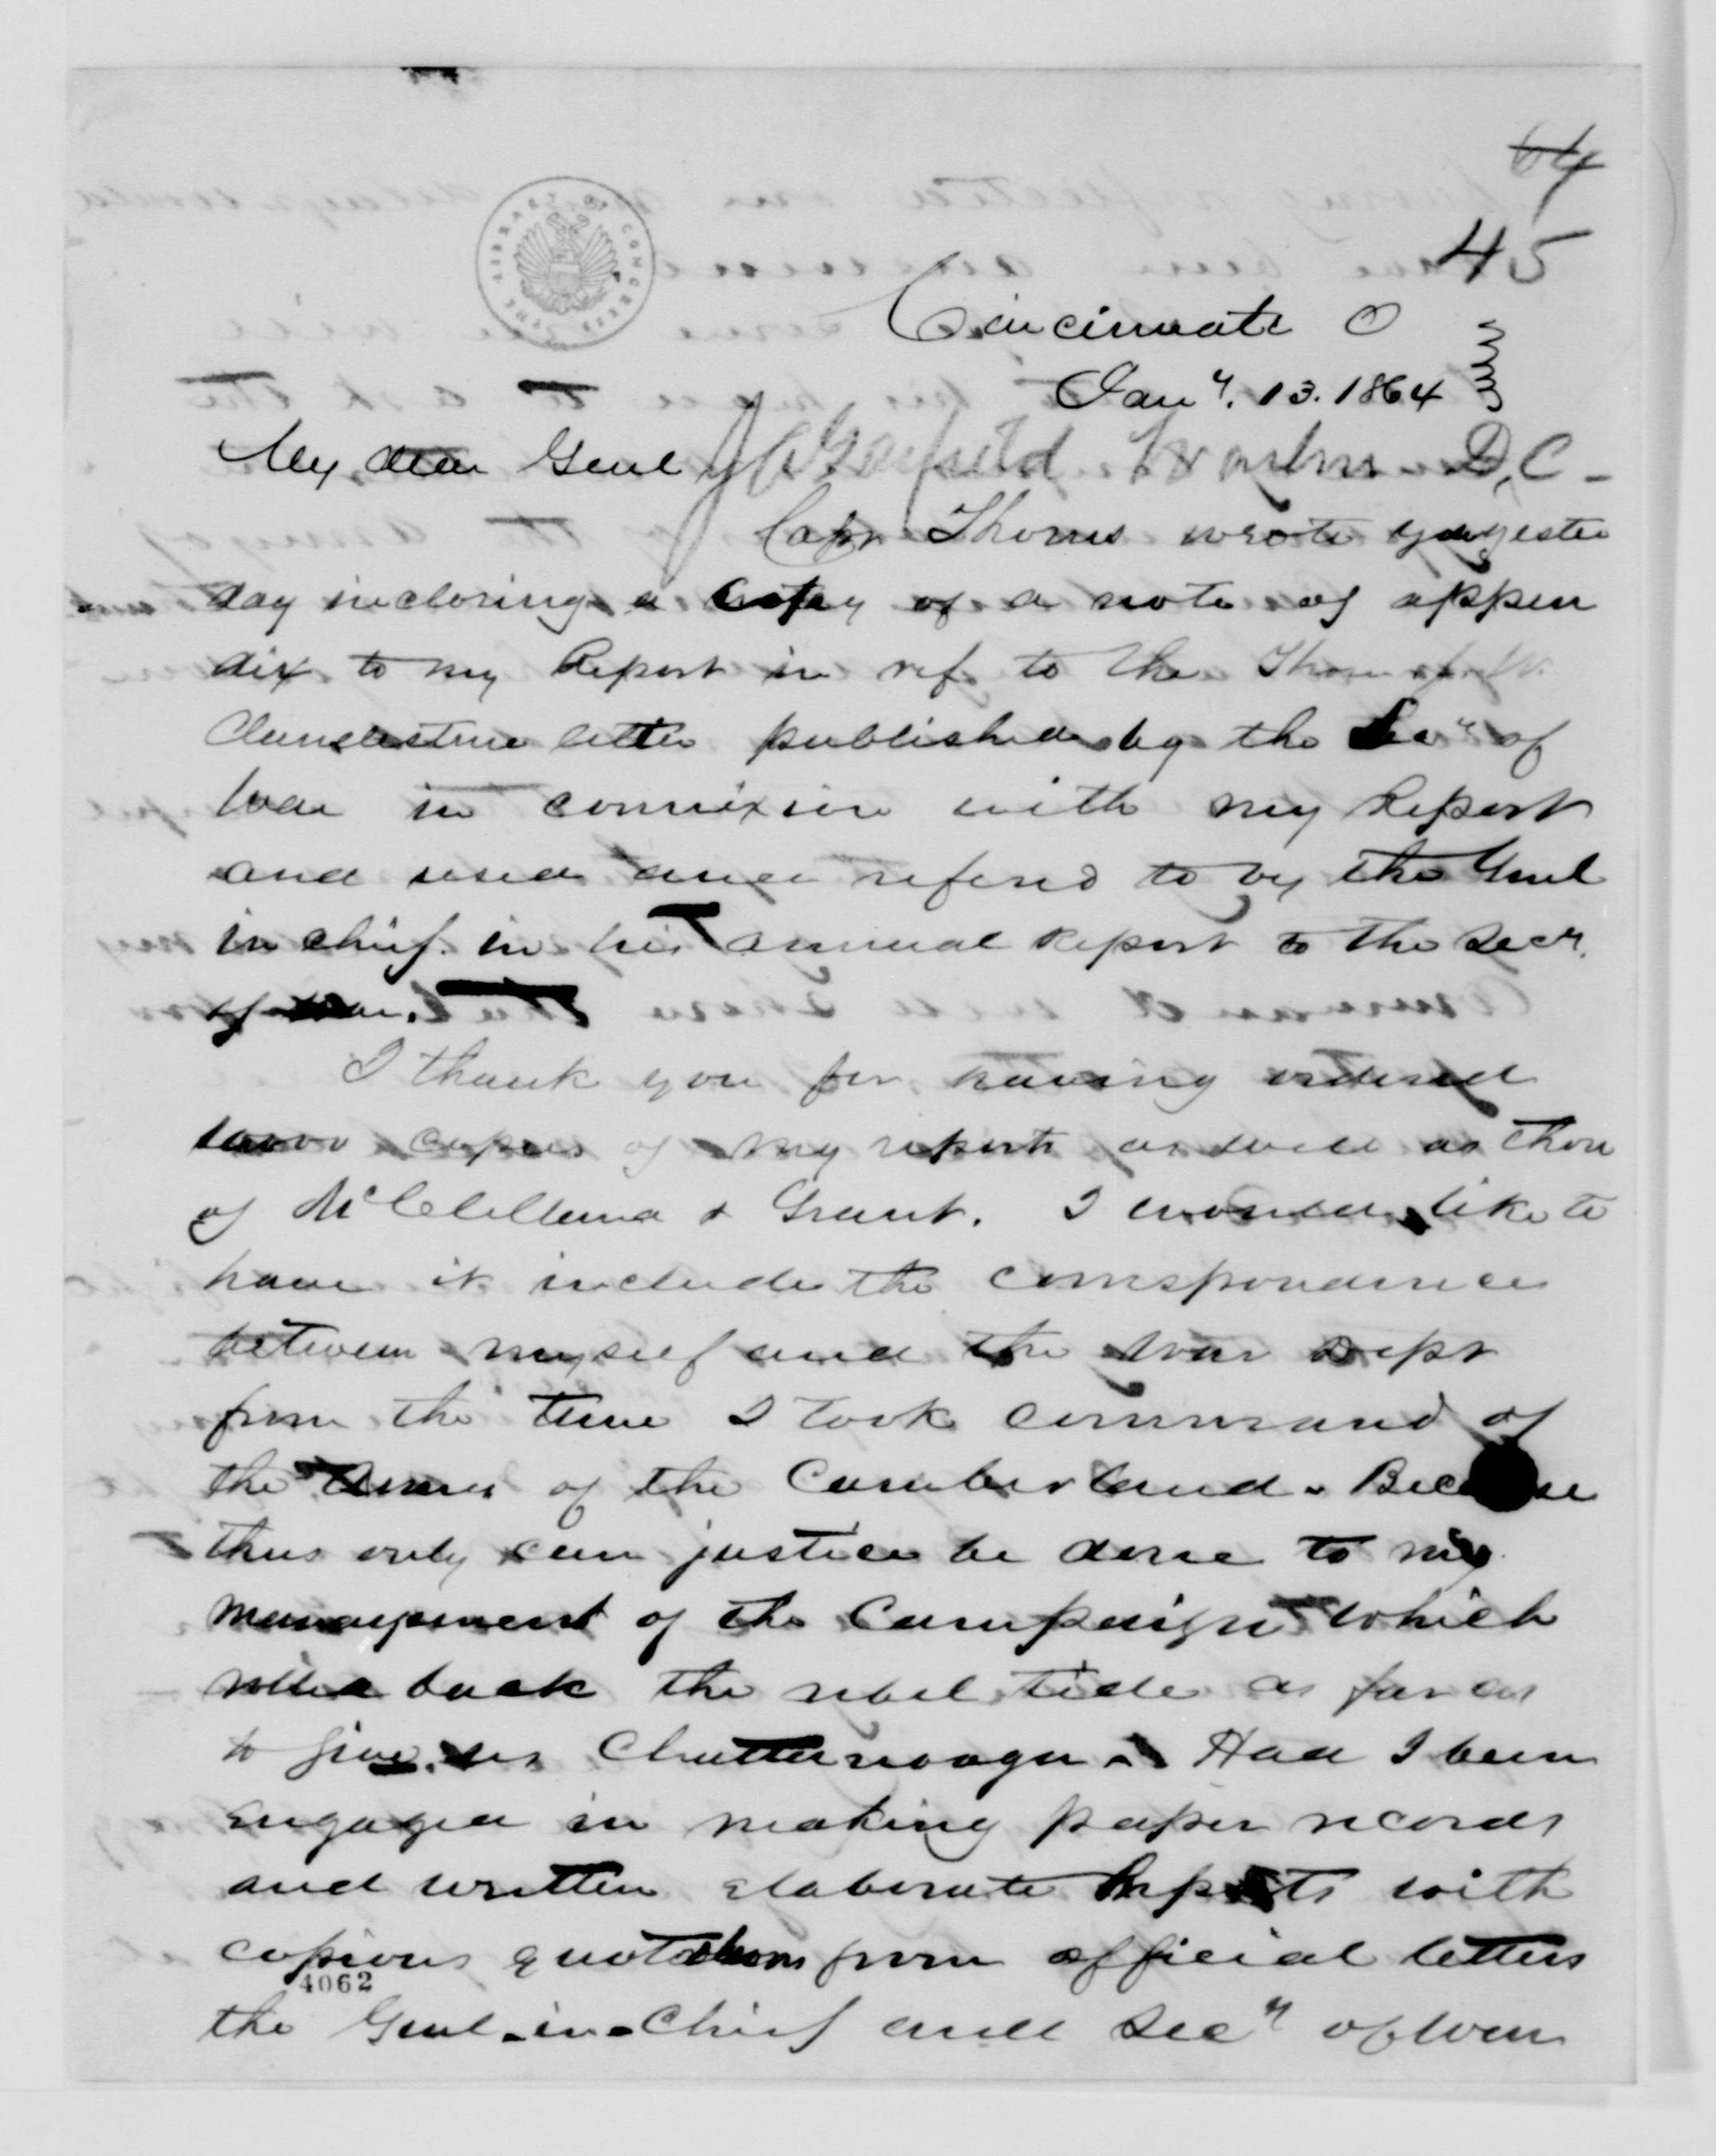 64
45
LIBRARY OF CONGRESS
Cincinnati O
Jany. 13. 1864
My dear Genl J A Garfield Washn - D.C -
Capt Thoms wrote you yester
day inclosing a Copy of a note of appen
dix to my Report in ref to the
Clandestine letter published by the Secy of
War in connexion with my Report
and used and referd to by the Genl
in chief in his annual Report to the Secy.
of War.
I thank you for having ordered
copies of my reports as well as those
of McClelland & Grant. I would like to
have it include the correspondence
between myself and the War Dept
from the time I took command of
the Army of the Cumberland. Because
thus only can justice be done to my
management of the Campaign which
rolled back the rebel tide as far as
to give us Chattanooga. Had I been
engaged in making paper records
and written elaborate Reports with
copious quotations from official letters
4062
the Genl-in-Chief and Secy of War